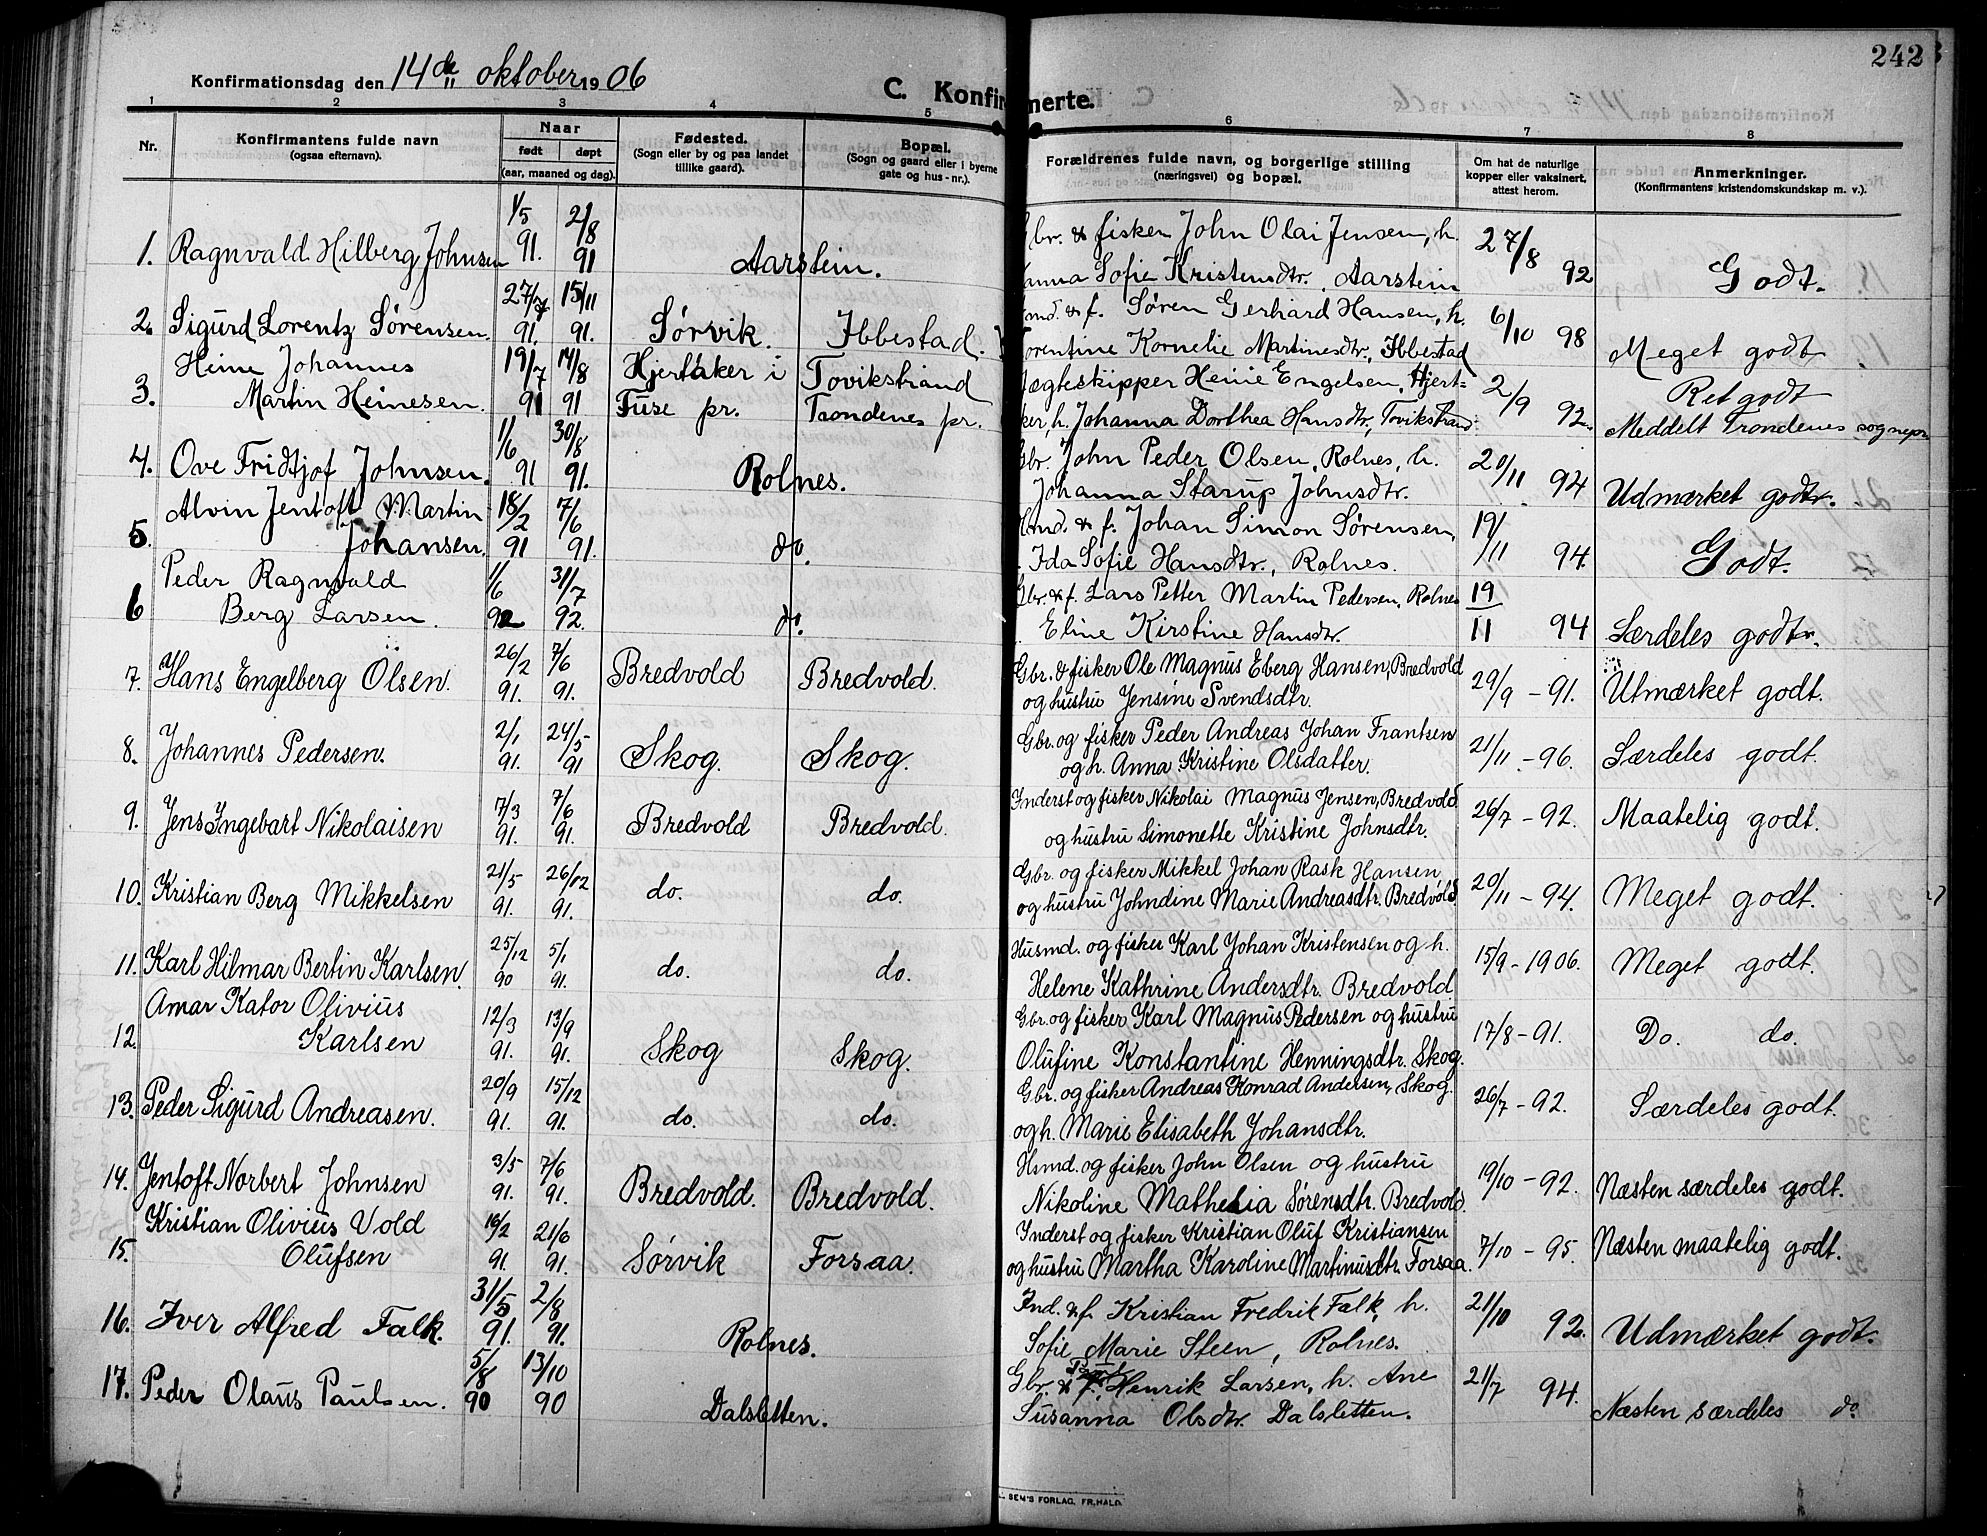 242
Konfirmationsdag den 14de oktober 1906
C. Konfirmerte.
1 2 3 4 5 6 7 8
Nr. Konfirmantens fulde navn (ogsaa efternavn). Naar født døpt (aar, maaned og dag). Fødested. (Sogn eller by og paa landet tillike gaard). Bopæl. (Sogn og gaard eller i byerne gate og hus-nr.). Forældrenes fulde navn, og borgerlige stilling (næringsvei) og bopæl. Om hat de naturlige kopper eller vaksinert, attest herom. Anmerkninger. (Konfirmantens kristendomskundskap m. v.).
1. Ragnvald Hilberg Johnsen 1/5 91. 2/8 91 Aarstein. Gbr. & fisker John Olai Jensen, h. Anna Sofie Kristensdtr., Aarstein 27/8 92 Godt.
2. Sigurd Lorentz Sørensen. 27/7 91. 15/11 91. Sørvik. Ibbestad. Hmd. & f. Søren Gerhard Hansen, h. Torentine Kornelie Martinesdtr., Ibbestad 6/10 98 Meget godt
3. Heine Johannes Martin Heinesen. 19/7 91 14/8 91 Hjertåker i Fuse pr. Tovikstrand Trondenes pr. Jægteskipper Heine Engelsen, Hjertåker, h. Johanna Dorthea Hansdtr., Tovikstrand 2/9 92. Ret godt Meddelt Trondenes sognepr
4. Ove Fridtjof Johnsen. 1/6 91 30/8 91. Rolnes. Gbr. John Peder Olsen, Rolnes, h. Johanna Starup Johnsdtr. 20/11 94 Udmærket godt.
5. Alvin Jentoft Martin Johansen. 18/2 91 7/6 91. do. Hmd. & f. Johan Simon Sørensen, Ida Sofie Hansdtr., Rolnes. 19/11 94. Godt.
6 Peder Ragnvald Berg Larsen. 1/6 92 31/7 92. do. Gbr. & f. Lars Petter Martin Pedersen, Rolnes Eline Kirstine Hansdtr. 19/11 94 Særdeles godt.
7. Hans Engelberg Olsen. 26/2 91. 7/6 91. Bredvold Bredvold. Gbr. & fisker Ole Magnus Eberg Hansen, Bredvold og hustru Jensine Svendsdtr. 29/9 - 91. Utmærket godt.
8. Johannes Pedersen. 2/1 91. 24/5 91 Skog. Skog. Gbr. og fisker Peder Andreas Johan Frantsen og h. Anna Kristine Olsdatter. 21/11 - 96. Særdeles godt.
9. Jens Ingebart Nikolaisen 7/3 91. 7/6 91. Bredvold Bredvold. Inderst og fisker Nikolai Magnus Jensen, Bredvold og hustru Simonette Kristine Johnsdtr. 26/7 - 92. Maatelig godt.
10. Kristian Berg Mikkelsen 21/5 91. 26/12 91. do. do. Gbr. og fisker Mikkel Johan Rask Hansen og hustru Johndine Marie Andreasdtr. Bredvold. 20/11 - 94. Meget godt.
11. Karl Hilmar Bertin Karlsen. 25/12 90 5/1 91. do. do. Husmd. og fisker Karl Johan Kristensen og h. Helene Kathrine Andersdtr. Bredvold 15/9 - 1906. Meget godt.
12. Amar Kator Olivius Karlsen 12/3 91. 13/9 91. Skog Skog. Gbr. og fisker Karl Magnus Pedersen og hustru Olufine Konstantine Henningsdtr. Skog. 17/8 - 91. Do. do.
13. Peder Sigurd Andreasen. 20/9 91. 15/12 91. do. do. Gbr. og fisker Andreas Konrad Andersen, Skog. og h. Marie Elisabeth Johansdtr. 26/7 - 92. Særdeles godt.
14. Jentoft Norbert Johnsen 3/5 91. 7/6 91. Bredvold. Bredvold. Hsmd. og fisker John Olsen og hustru Nikoline Mathelia Sørensdtr. Bredvold. 19/10 - 92. Næsten særdeles godt.
15. Kristian Olivius Vold Olufsen 16/2 91. 21/6 91. Sørvik Forsaa. Inderst og fisker Kristian Oluf Kristiansen og hustru Martha Karoline Martinusdtr. Forsaa. 7/10 - 95. Næsten maatelig godt.
16. Iver Alfred Falk. 31/5 91. 2/8 91. Rolnes. Ind. & f. Kristian Fredrik Falk, h. Sofie Marie Steen, Rolnes. 21/10 92. Udmærket godt.
17. Peder Olaus Paulsen. 5/8 90 13/10 90 Dalsletten. Gbr. & f. Henrik Larsen, h. Ane Susanna Olsdtr. Dalsletten. 21/7 94. Næsten særdeles do
SEM'S FORLAG, FR.HALD